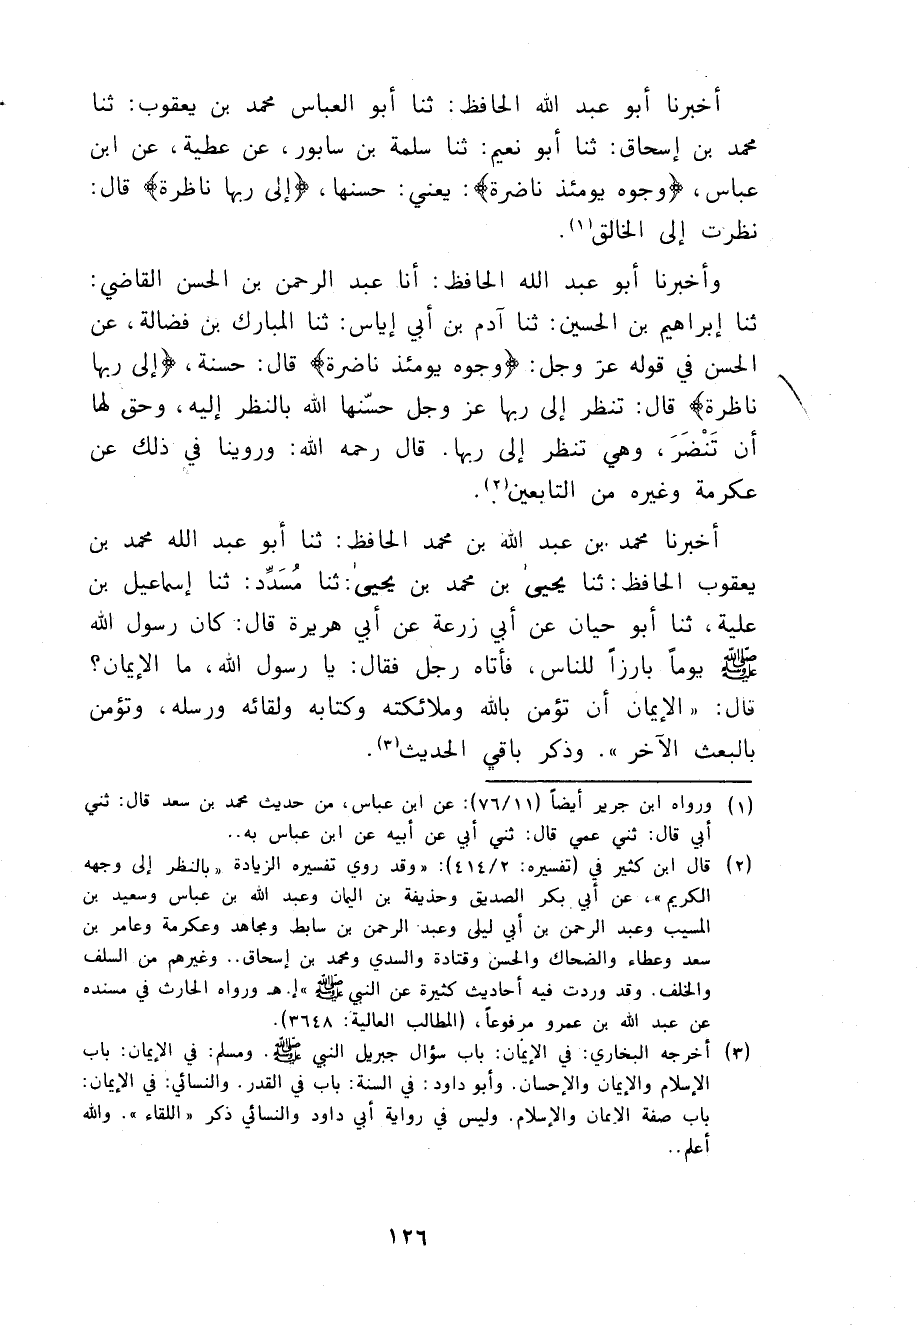 أخبرنا أبو عبد الله الحافظ: ثنا أبو العباس محمد بن يعقوب: ثنا
محمد بن إسحاق: ثنا أبو نعيم: ثنا سلمة بن سابور، عن عطية، عن ابن
عباس، ﴿وجوه يومئذ ناضرة﴾: يعني: حسنها، ﴿إلى ربها ناظرة﴾ قال:
نظرت إلى الخالق(١).
وأخبرنا أبو عبد الله الحافظ: أنا عبد الرحمن بن الحسن القاضي:
ثنا إبراهيم بن الحسين: ثنا آدم بن أبي إياس: ثنا المبارك بن فضالة، عن
الحسن في قوله عز وجل: ﴿وجوه يومئذ ناضرة﴾ قال: حسنة، ﴿إلى ربها
ناظرة﴾ قال: تنظر إلى ربها عز وجل حسّنها الله بالنظر إليه، وحق لها
أن تَنْضَرَ، وهي تنظر إلى ربها. قال رحمه الله: وروينا في ذلك عن
عكرمة وغيره من التابعين(٢).
أخبرنا محمد بن عبد الله بن محمد الحافظ: ثنا أبو عبد الله محمد بن
يعقوب الحافظ: ثنا يحيىٰ بن محمد بن يحيىٰ: ثنا مُسَدِّد: ثنا إسماعيل بن
علية، ثنا أبو حيان عن أبي زرعة عن أبي هريرة قال: كان رسول الله
ﷺ يوماً بارزاً للناس، فأتاه رجل فقال: يا رسول الله، ما الإيمان؟
قال: «الإيمان أن تؤمن بالله وملائكته وكتابه ولقائه ورسله، وتؤمن
بالبعث الآخر». وذكر باقي الحديث(٣).
(١) ورواه ابن جرير أيضاً (٧٦/١١): عن ابن عباس، من حديث محمد بن سعد قال: ثني
أبي قال: ثني عمي قال: ثني أبي عن أبيه عن ابن عباس به..
(٢) قال ابن كثير في (تفسيره: ٤١٤/٢): «وقد روي تفسيره الزيادة «بالنظر إلى وجهه
الكريم»، عن أبي بكر الصديق وحذيفة بن اليمان وعبد الله بن عباس وسعيد بن
المسيب وعبد الرحمن بن أبي ليلى وعبد الرحمن بن سابط ومجاهد وعكرمة وعامر بن
سعد وعطاء والضحاك والحسن وقتادة والسدي ومحمد بن إسحاق.. وغيرهم من السلف
والخلف. وقد وردت فيه أحاديث كثيرة عن النبي ﷺ» إ.هـ ورواه الحارث في مسنده
عن عبد الله بن عمرو مرفوعاً، (المطالب العالية: ٣٦٤٨).
(٣) أخرجه البخاري: في الإيمان: باب سؤال جبريل النبي ﷺ. ومسلم: في الإيمان: باب
الإسلام والإيمان والإحسان. وأبو داود: في السنة: باب في القدر. والنسائي: في الإيمان:
باب صفة الإيمان والإسلام. وليس في رواية أبي داود والنسائي ذكر «اللقاء». والله
أعلم..
١٢٦